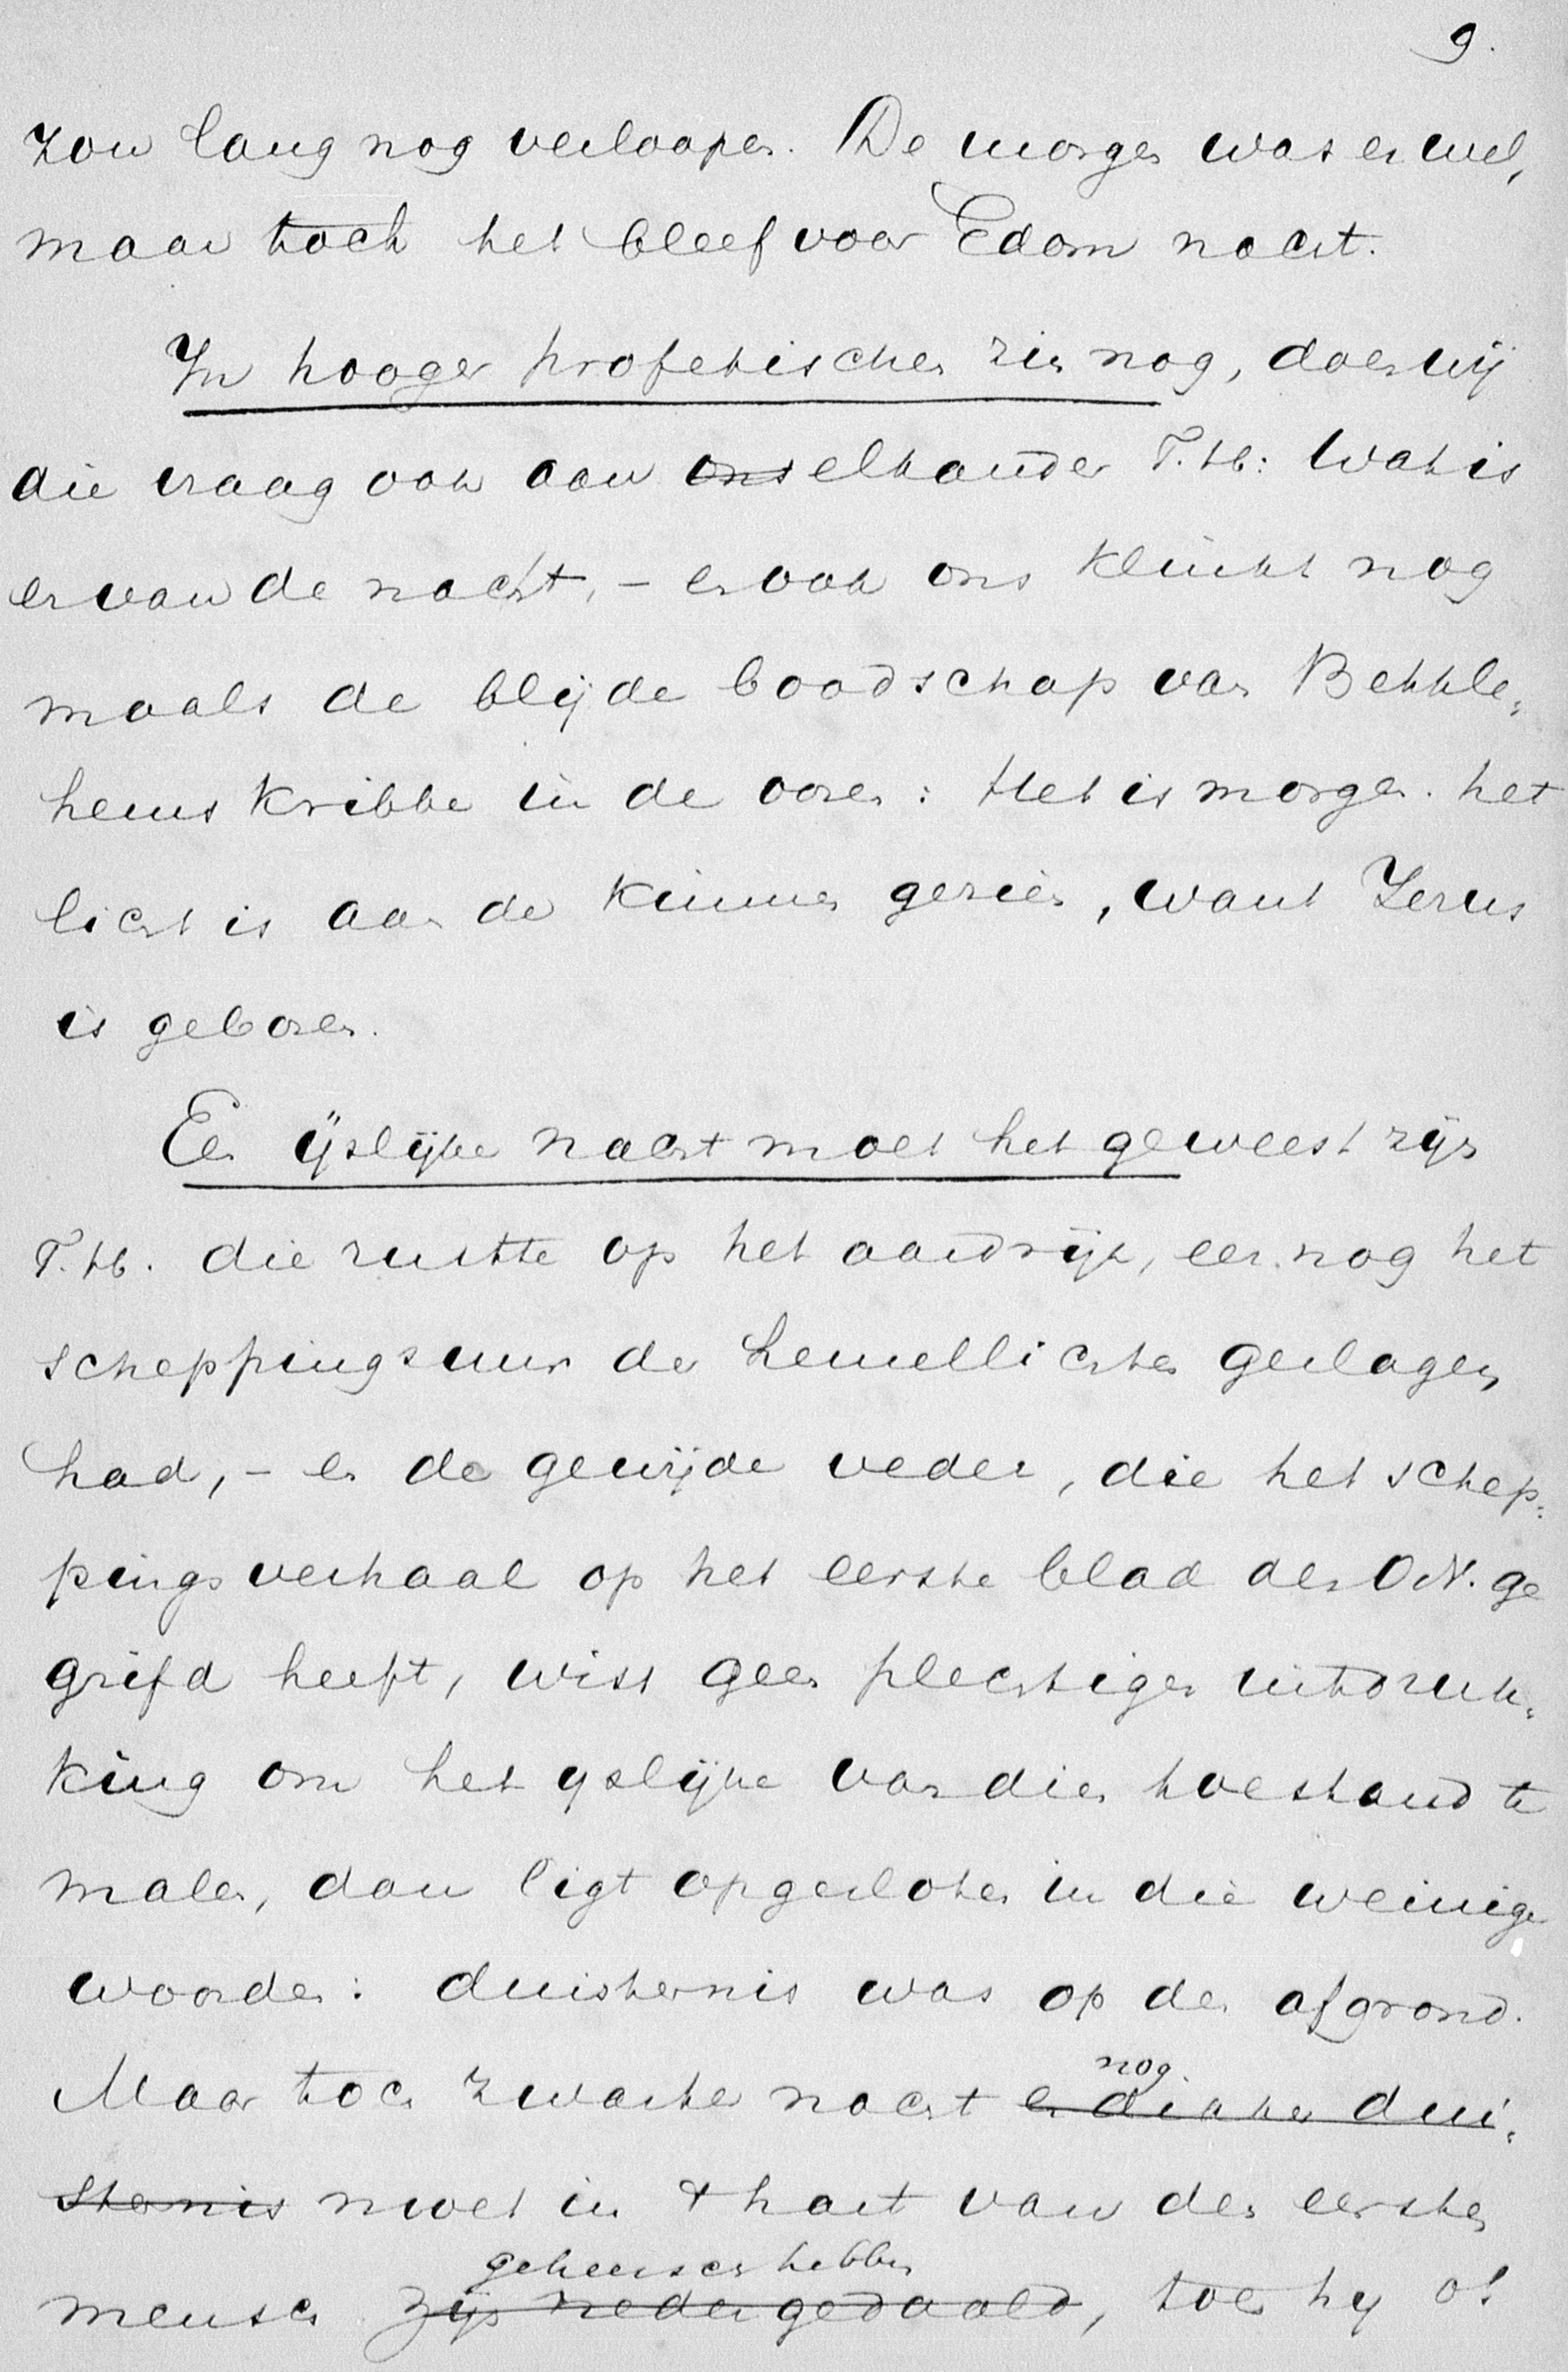 9.
zou lang nog verloopen. De morgen was er wel,
maar toch het bleef voor Edom nacht.
In hooger profetischen zin nog, doen wij
die vraag ook aan ons elkander T.H.: Wat is
er van de nacht, – en ook ons klinkt nog
maals de blijde boodschap van Bethle„
hems kribbe in de ooren: Het is morgen. het
licht is aan de kimmen gezien, want Jezus
is geboren.
Een ijslijke nacht moet het geweest zijn
T.H. die rustte op het aardrijk, eer nog het
scheppingsuur der hemellichten geslagen
had, – en de gewijde veder, die het schep„
pingsverhaal op het eerste blad des O.V. ge
grifd heeft, wist geen plechtiger uitdruk„
king om het yslijke van dien toestand te
malen, dan ligt opgesloten in die weinige
woorden: duisternis was op den afgrond.
nog
Maar toch zwarter nacht en dikker dui„
sternis moet in 't hart van den eersten
geheerscht hebben
mensch zijn nedergedaald, toen hy o!